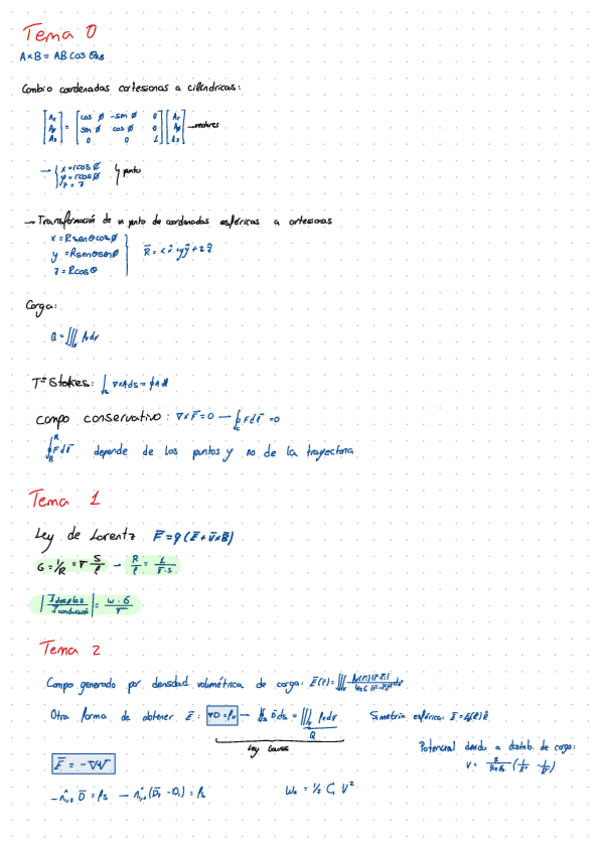 Tema 0
A×B = AB cos θAB
Cambio coordenadas cartesianas a cilíndricas:
[Ax Ay Az] = [cos ϕ -sen ϕ 0; sen ϕ cos ϕ 0; 0 0 1] [Ar Aϕ Az] → vectores
→ { x = r cos ϕ
y = r cos ϕ } punto
z = z
→ Transformación de un punto de coordenadas esféricas a cartesianas
x = R senθ cosϕ
y = R senθ senϕ } R̄ = x x̂ + y ŷ + z ẑ
z = R cosθ
Carga:
Q = ∭ ρv dv
Tª Stokes: ∫s ∇×A ds = ∮ A dl
campo conservativo: ∇×F̄ = 0 — ∮c F dl̄ = 0
F dl̄ depende de los puntos y no de la trayectoria
Tema 1
Ley de Lorentz F̄ = q (Ē + v̄×B̄)
G = 1/R = σ S/l → R/l = 1/(σ·S)
| J desplaz / J conducción | = w·ε/σ
Tema 2
Campo generado por densidad volumétrica de carga: Ē(r̄) = ∭
Otra forma de obtener Ē: ∇D = ρv — ∯s D̄ ds = ∭v ρv dv Simetría esférica:
Q
Ley Gauss
Potencial debido a distrib. de carga:
Ē = -∇V
- n̂1,2 D̄ = ρs → n̂1,2 (D̄2 - D̄1) = ρs We = 1/2 C V²